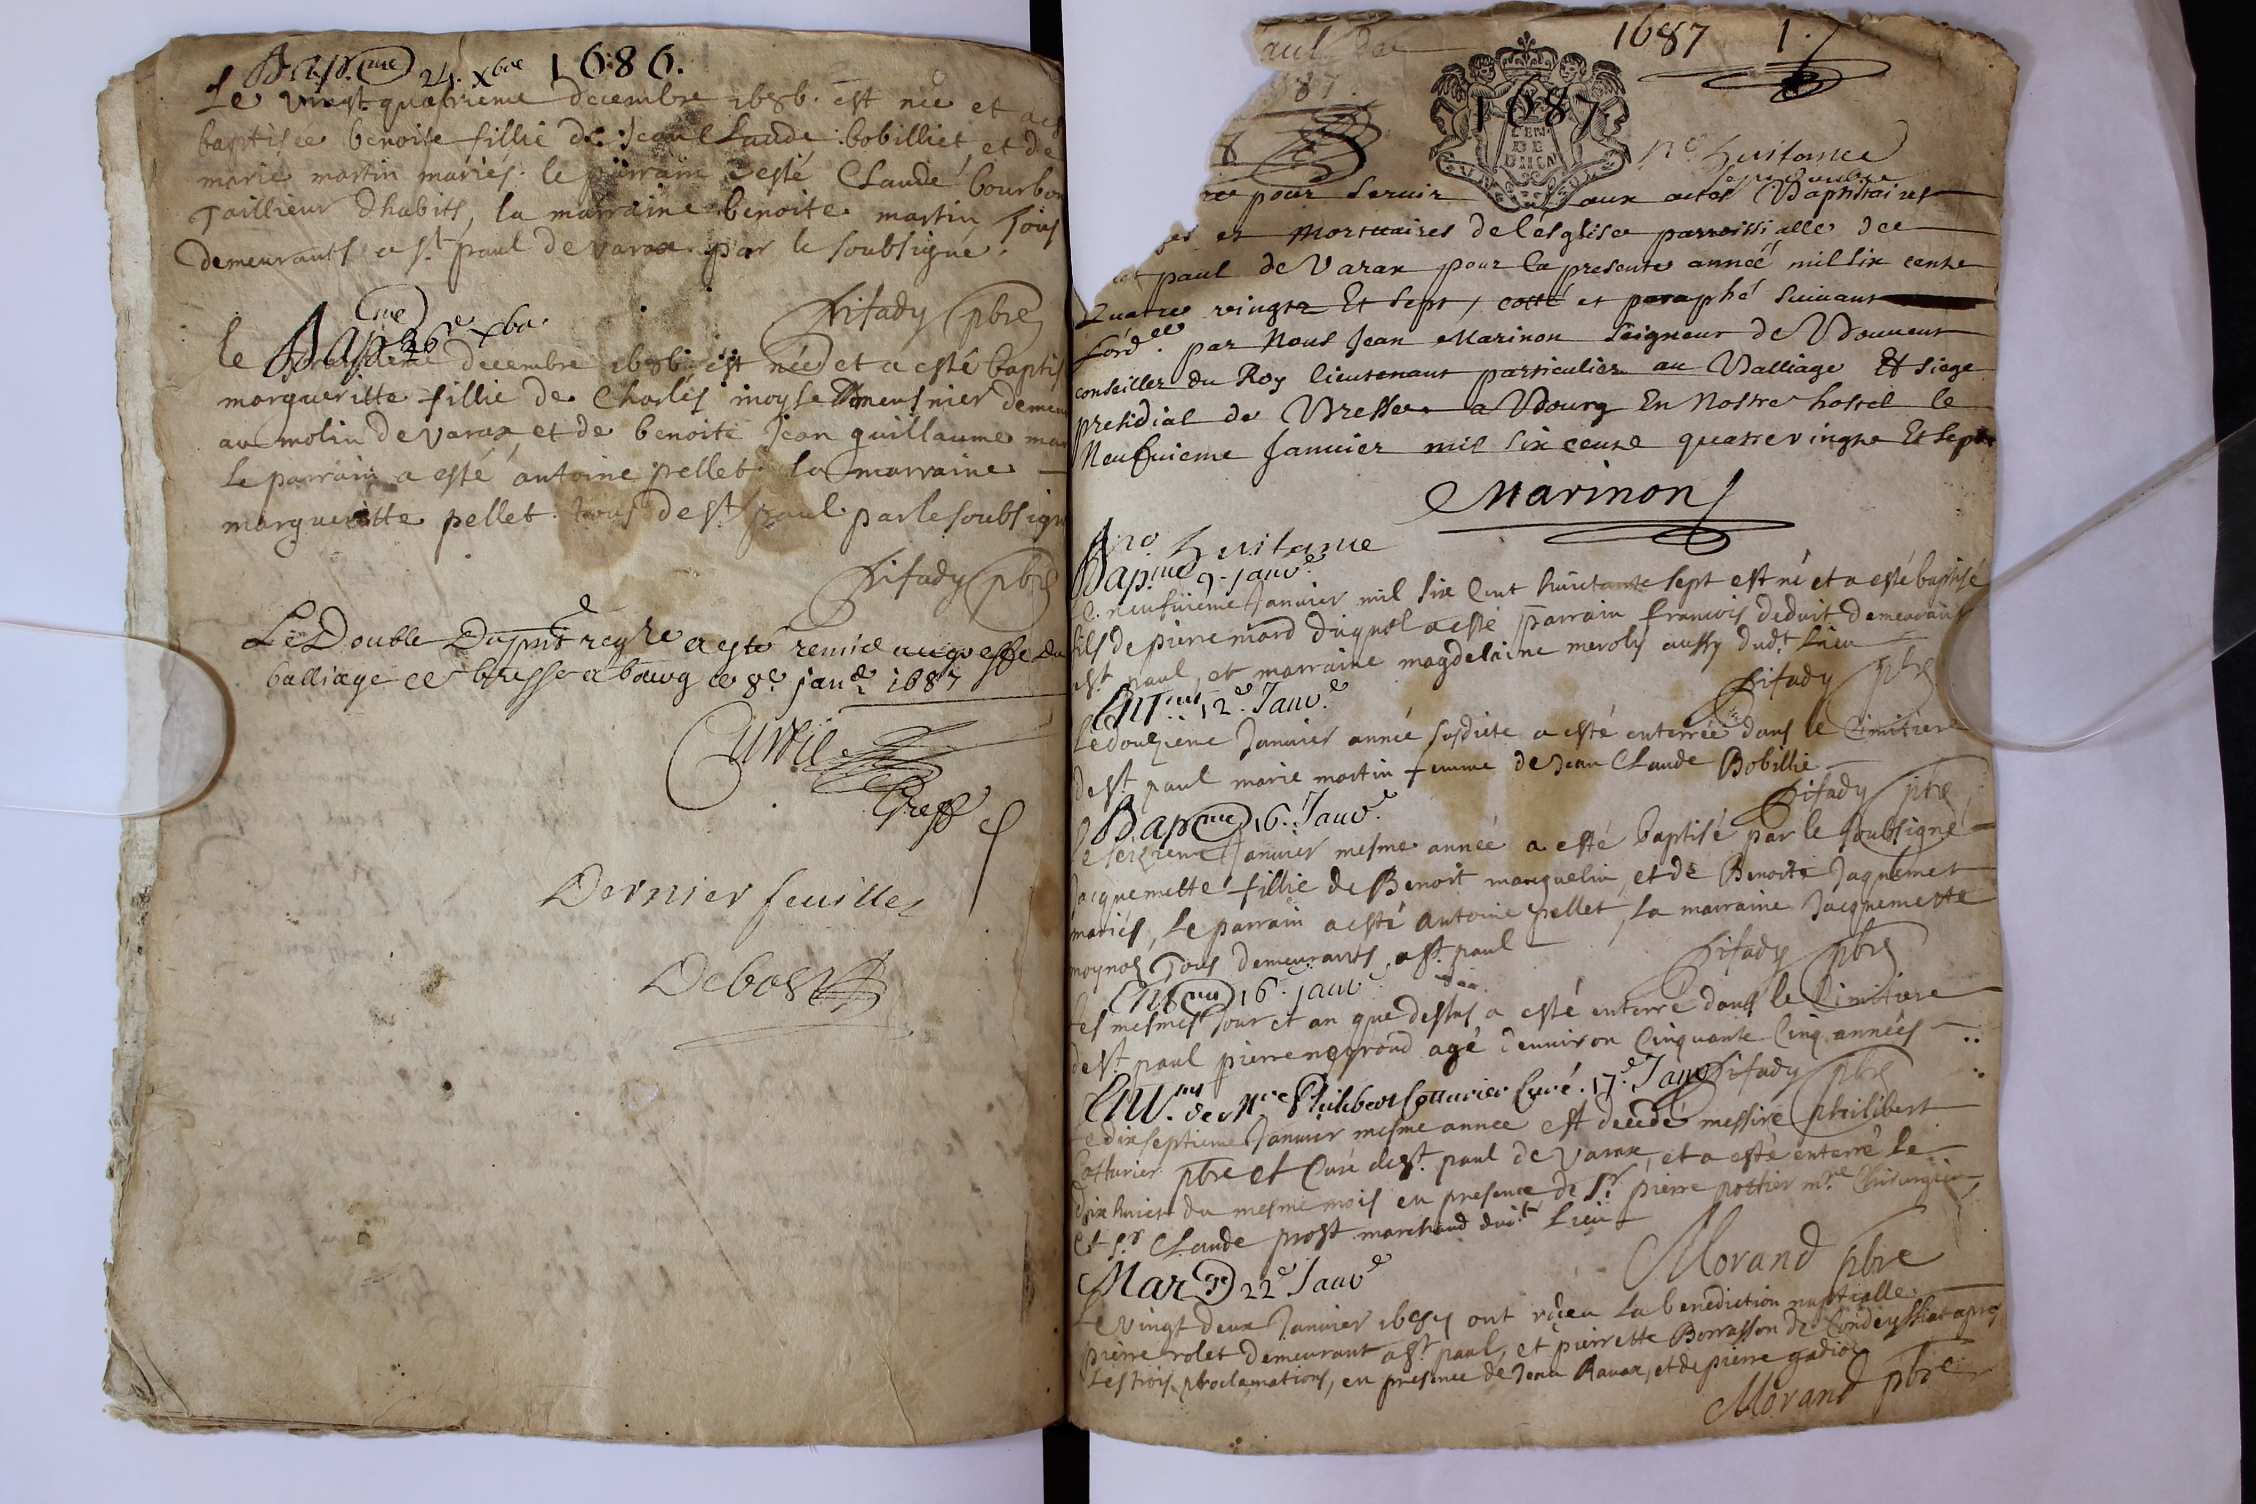 Bap.me 24. Xbre 1686.
Le vingt quatrieme decembre 1686. est née et a esté
baptisée benoite fillie de Jean Claude bobilliet et de
marie martin mariés. le parrain a esté Claude bourbon
Taillieur dhabits, la marraine benoite martin Tous
demeurants a st paul de varax par le soubsigné.
Fifady pbre
Bap.me 26e xbre
le decembre 1686 est née et a esté baptis
margueritte fillie de Charles moyse meusnier demeu
au molin de varax et de benoite Jean guillaume mar
le parrain a esté antoine pellet la marraine
margueritte pellet tous de st paul par le soubsigné
Fifady pbre
Le Double Du pnt regre a esté remis au greffe du
balliage de bresse a bourg ce 8e janer 1687
Curvil
Greff
Dernier feuillet
Debost
1687 1.
aul de
87.
1687
no huitante
re pour servir aux actes Baptistaires
et mortuaires de lesglise parroissialle de
paul de Varax pour la presente année mil six cents
Quatre vingts Et sept, cotté et paraphé suivant
lord.ce par Nous Jean Marinon Seigneur de Bouvent
conseiller du Roy lieutenant particulier au Balliage Et siege
presidial de Bresse a Bourg En Nostre hostel le
Neufvieme Janvier mil six cents quatre vingts Et sept
Marinon
no huitante
Bap.me 9. janv.e
le neufvieme Janvier mil six cent huictante sept est né et a esté baptisé
fils de pierre niard duquel a esté parrain francois deduit demeurant
a st paul, et marraine magdelaine meroly aussy dudt Lieu
Fifady pbre
Ent.nt 12.e Janv.e
Le douzieme Janvier année susdite a esté enterrée dans le Cimitiere
de st paul marie martin femme de Jean Claude Bobillie
Fifady pbre
Bap.me 16. Janv.e
le seizieme Janvier mesme année a esté baptisé par le soubsigné
Jacquemette fillie de Benoit manguelin, et de Benoite Jaquemet
mariés, Le parrain a esté antoine pellet, la marraine Jacquemette
moynos Tous demeurants a st paul
Fifady pbre
Ent.nt 16. janv.
les mesmes Jour et an que dessus a esté enterré dans le Cimitiere
de st paul pierre neyroud agé d'environ Cinquante Cinq années
Fifady pbre
Ent.nt de Mre Philibert Cotturier Curé. 17.e Janv
Le dixseptieme Janvier mesme annee est decedé messire philibert
Cotturier pbre et Curé de st. paul de varax, et a esté enterré le
dix huict du mesme mois en presence de Sr pierre pottier mre Chirurgien,
et Sr Claude prost marchand dudt Lieu
Morand pbre
Mar.ge 22e Janv.e
Le vingt deux Janvier 1687 ont receu la benediction nuptialle
pierre rolet demeurant a st paul, et pierrette Borrasson de Condeyssiat apres
Les trois proclamations, en presence de Jean Ravax, et de pierre gadiot
Morand pbre